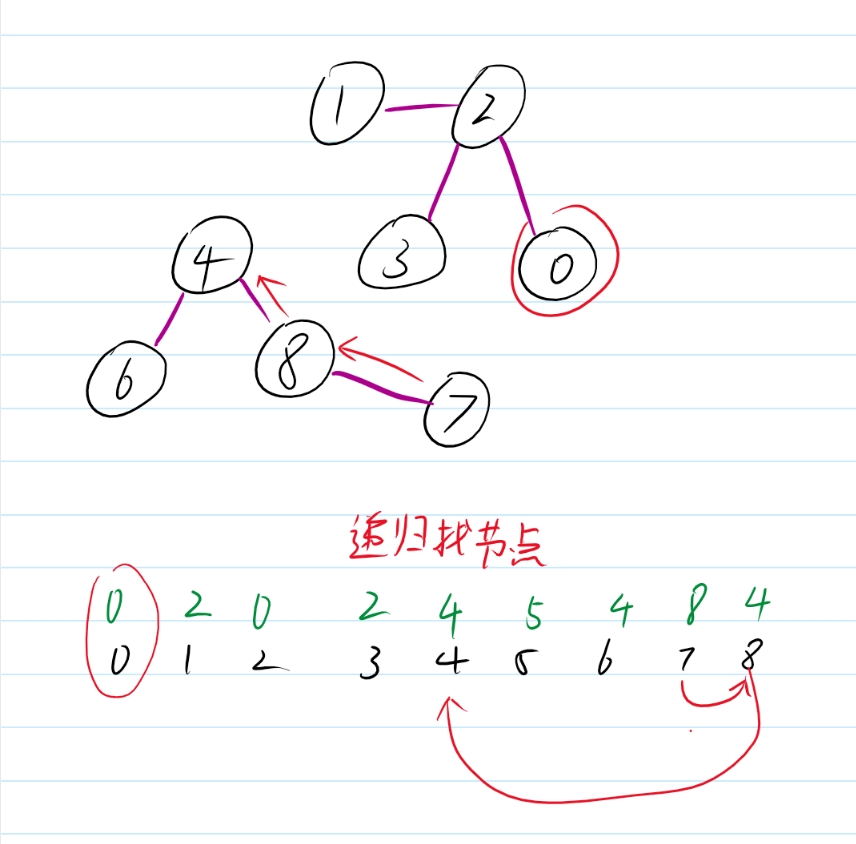 1 2
3 0
4
6 8
7
递归找节点
0 2 0 2 4 5 4 8 4
0 1 2 3 4 5 6 7 8